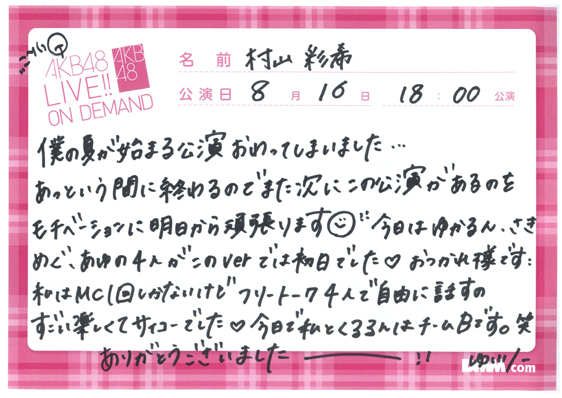 AKB48
LIVE!!
ON DEMAND
AKB
48
名前 村山 彩希
公演日 8月16日 18:00公演
僕の夏が始まる公演おわってしまいました…
あっという間に終わるのでまた次にこの公演があるのを
モチベーションに明日から頑張ります 今日はゆかるん、さき
めぐ、あゆの4人がこのverでは初日でした♡ おつかれ様です:
私はMC1回しかないけどフリートーク4人で自由に話すの
すごい楽しくてサイコーでした♡ 今日で私とくるるんはチームBです。笑
ありがとうございました ――― !!
.com